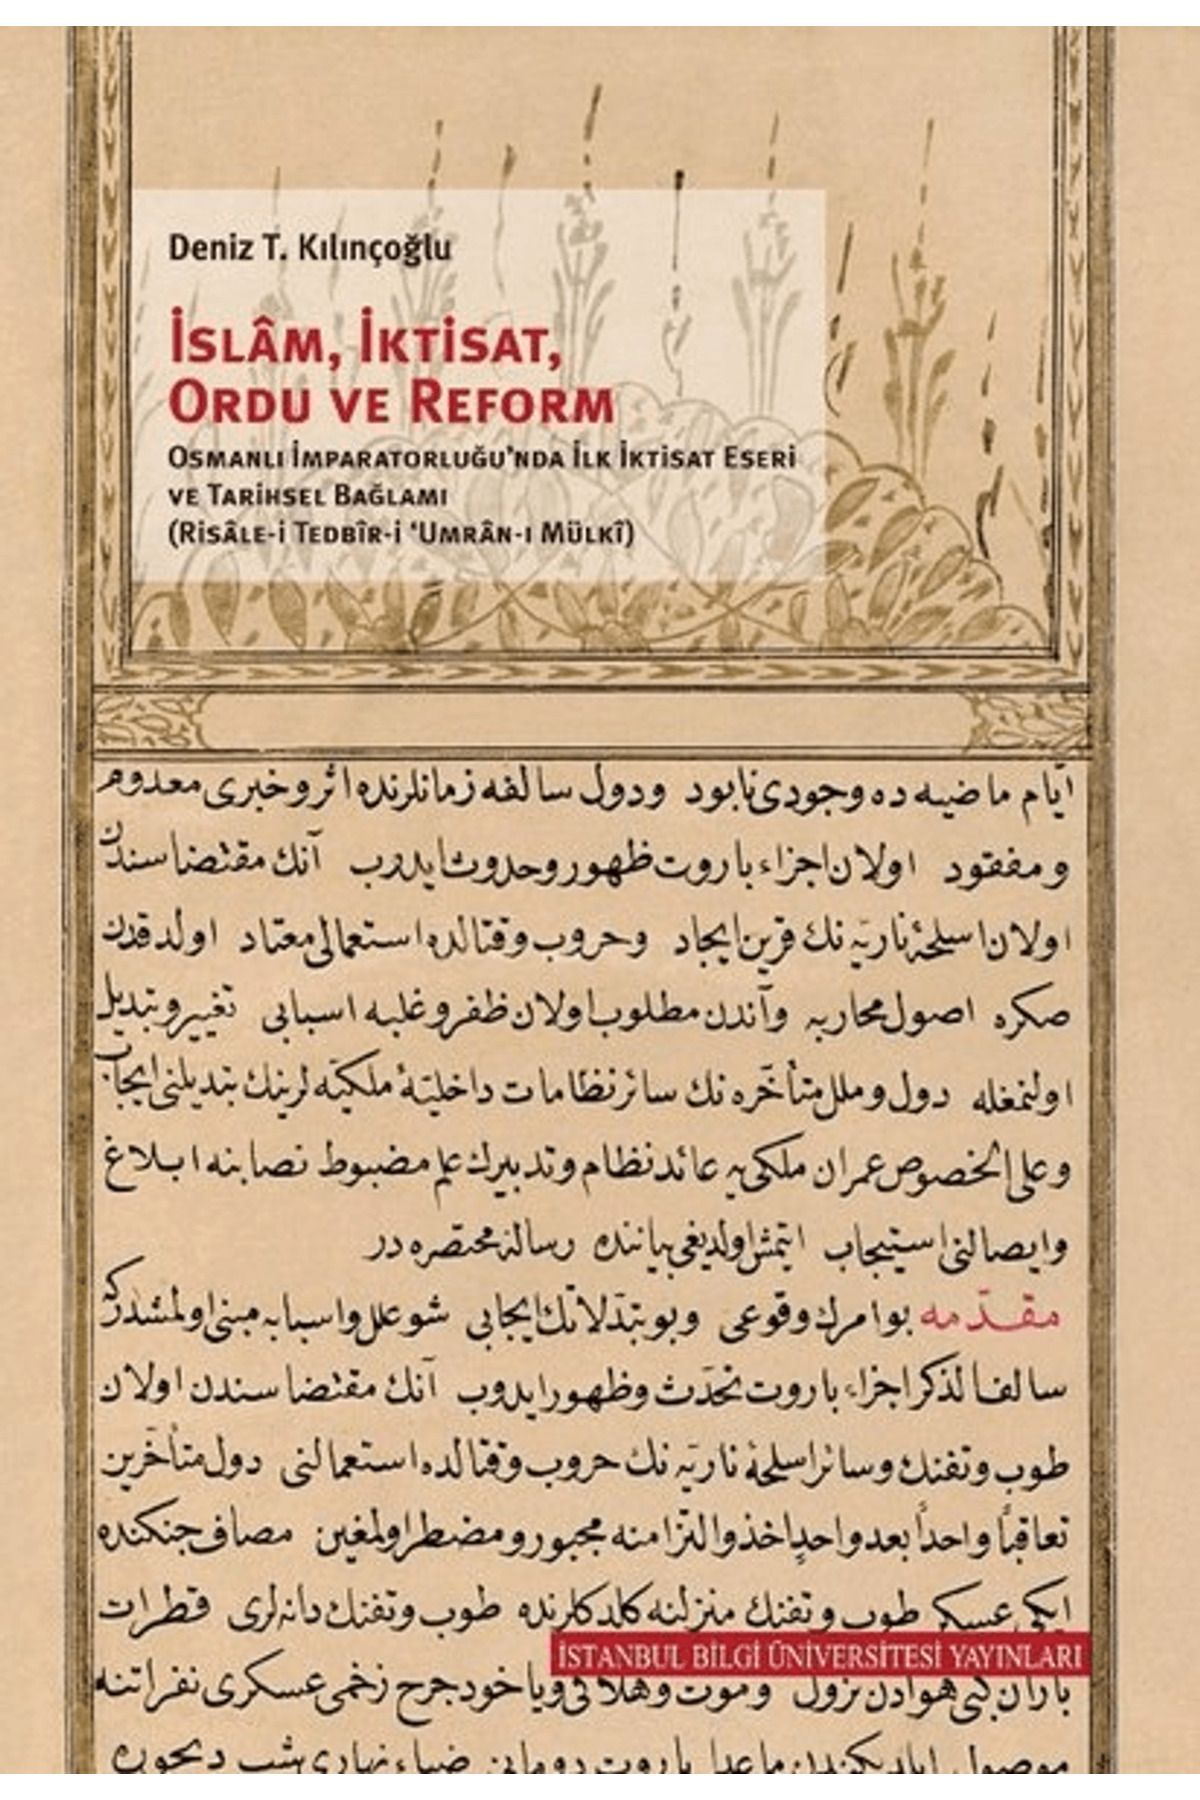 Deniz T. Kılınçoğlu
İSLÂM, İKTİSAT,
ORDU VE REFORM
OSMANLI İMPARATORLUĞU'NDA İLK İKTİSAT ESERİ
VE TARİHSEL BAĞLAMI
(RİSÂLE-İ TEDBÎR-İ 'UMRÂN-I MÜLKÎ)
ایّام ماضیه ده وجودی نابود ودول سالفه زمانلرنده اثر وخبری معدوم
ومفقود اولان اجزاء باروت ظهور وحدوث ایدوب آنك مقتضاسندن
اولان اسلحهٔ ناریّه نك قرین ایجاد وحروب وقتالده استعمالی معتاد اولدقدن
صكره اصول محاربه وآندن مطلوب اولان ظفر وغلبه اسبابی تغییر وتبدیل
اولنمغله دول وملل متأخّره نك سائر نظامات داخلیّهٔ ملكیّه لرینك تبدیلنی ایجاب
وعلی الخصوص عمران ملكی یه عائد نظام وتدبیرك علم مضبوط نصابنه ابلاغ
وایصالنی استیجاب ایتمش اولدیغی بیاننده رسالهٔ مختصره در
مقدّمه بو امرك وقوعی وبو تبدّلاتك ایجابی شو علل واسبابه مبنی اولمشدركه
سالف الذكر اجزاء باروت تحدّث وظهور ایدوب آنك مقتضاسندن اولان
طوب وتفنك وسائر اسلحهٔ ناریّه نك حروب وقتالده استعمالنی دول متأخّرین
تعاقبًا واحداً بعد واحدٍ اخذ والتزامنه مجبور ومضطر اولمغین مصاف جنكنده
ایكی عسكر طوب وتفنك منزلنه كلدكلرنده طوب وتفنك دانه لری قطرات
İSTANBUL BİLGİ ÜNİVERSİTESİ YAYINLARI
باران كبی هوادن نزول وموت وهلاكی ویاخود جرح زخمی عسكری نفراتنه
موصول ایلدیكندن ماعدا باروت دومانی ضیاء نهاری شب